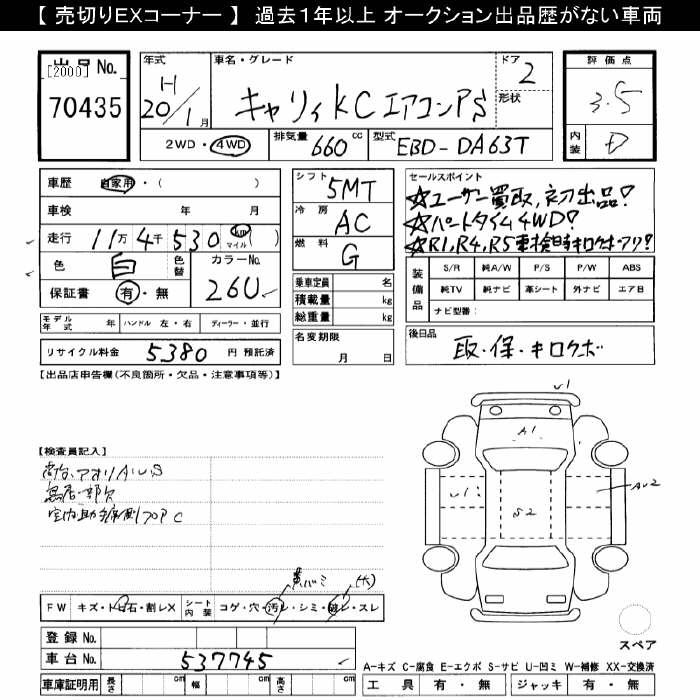 【 売切りEXコーナー 】 過去１年以上 オークション出品歴がない車両
出品 No.
[2000]
70435
年式
H
20/1月
車名・グレード
キャリィ KC エアコンPS
ドア
2
形状
評価点
3.5
内装
D
2WD・4WD
排気量
660 cc
型式
EBD-DA63T
車歴
自家用・( )
車検 年 月
走行 11万 4千 530 (km マイル)
色 白 色替
カラーNo.
26U
保証書 有・無
シフト
5MT
冷房
AC
燃料
G
セールスポイント
☆ユーザー買取,初出品!
☆パートタイム4WD!
☆R1,R4,R5車検時キロクボアリ?
装備品
S/R 純A/W P/S P/W ABS
純TV 純ナビ 革シート 外ナビ エアB
ナビ型番:
乗車定員 名
積載量 kg
総重量 kg
モデル年式 年
ハンドル 左・右
ディーラー・並行
名変期限
月 日
後日品
取・保・キロクボ
リサイクル料金 5380 円 預託済
【出品店申告欄(不良箇所・欠品・注意事項等)】
【検査員記入】
荷台、アオリA、U、S
鳥居一部欠
室内助手席側フロアC
U1
A1
U1
S2
AU2
スペア
FW キズ・トビ石・割レX
シート内装 コゲ・穴・汚レ・シミ・破レ・スレ
(大)
登録 No.
車台 No.
537745
車庫証明用 長さ cm 幅 cm 高さ cm
A-キズ C-腐食 E-エクボ S-サビ U-凹ミ W-補修 XX-交換済
工具 有・無 ジャッキ 有・無